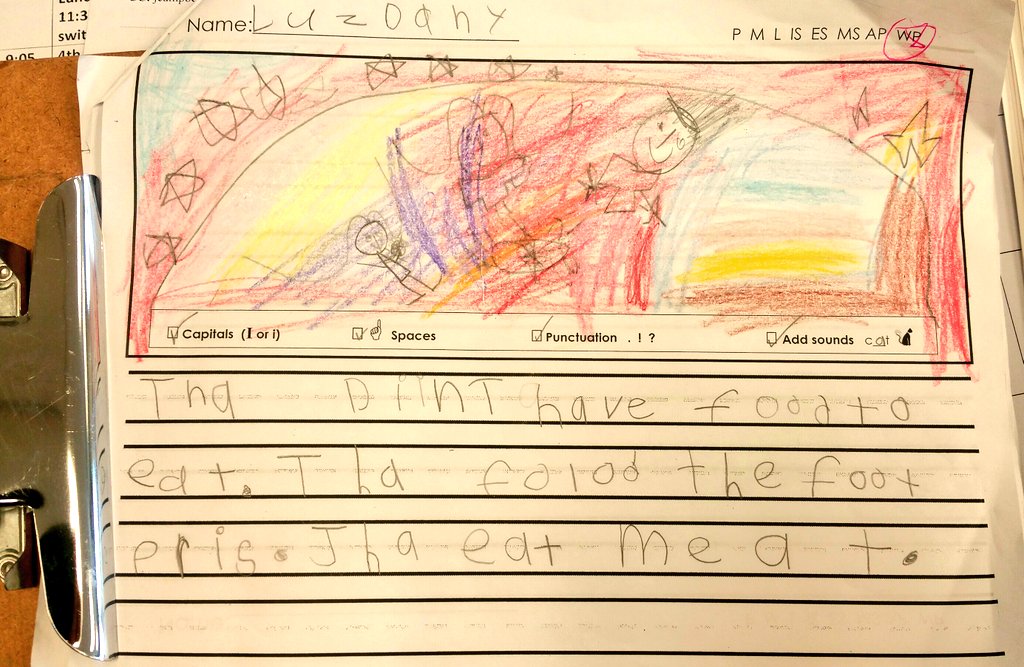 11:3
swit
9:05 4th
Name: Luzdany
P M L IS ES MS AP WR
Capitals (I or i) Spaces Punctuation . ! ? Add sounds cat
Tha DiinT have food to
eat. Tha falod the foot
eris. Tha eat meat.